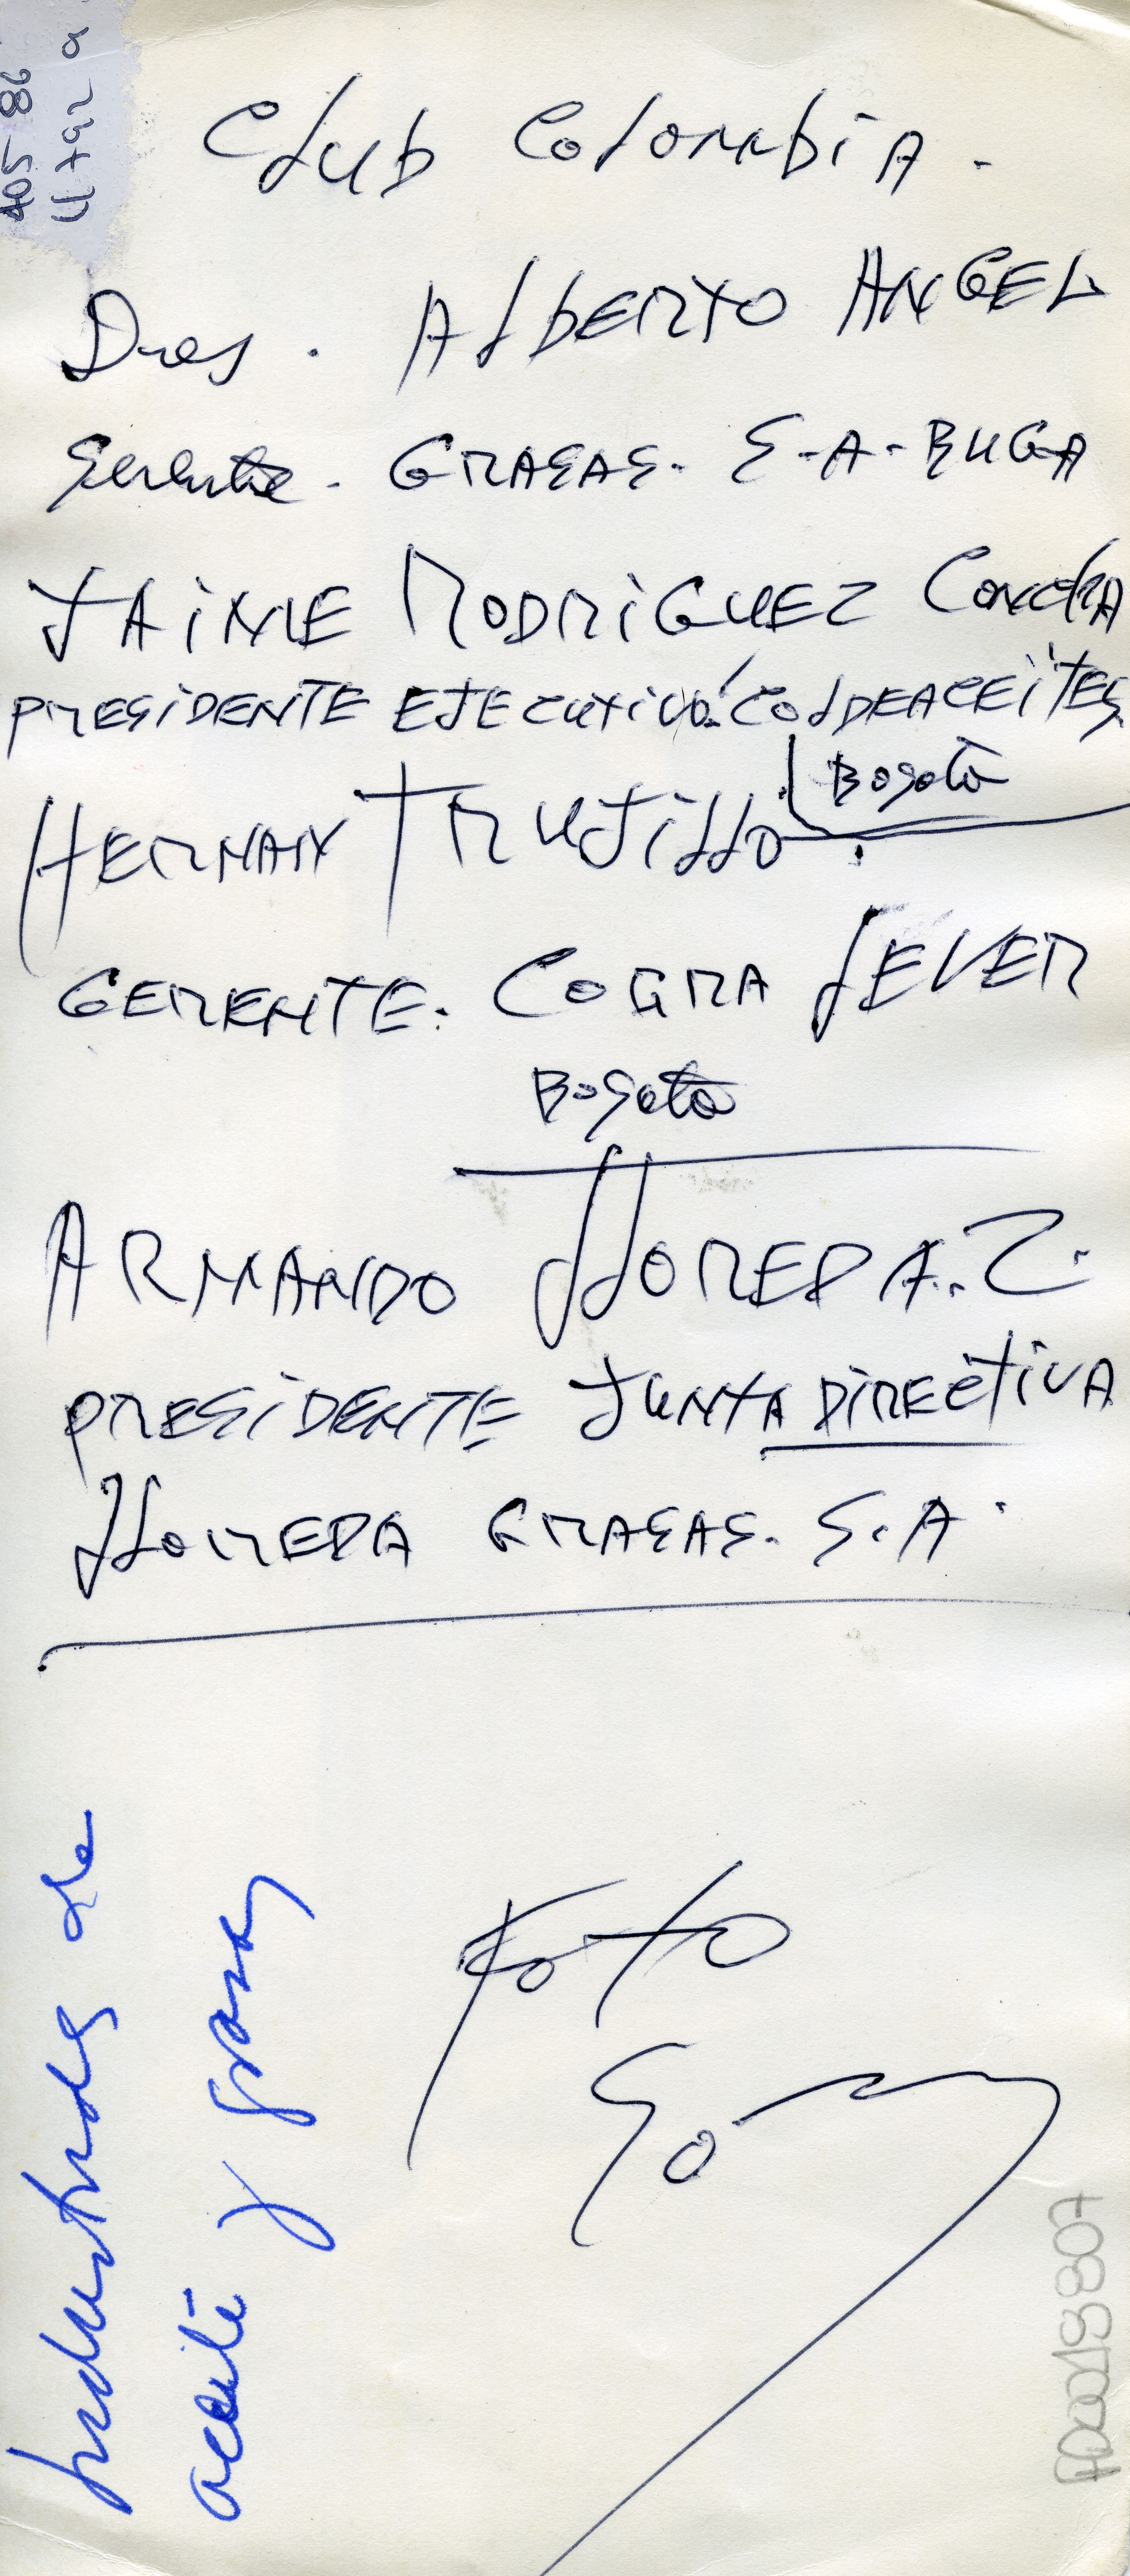 Club Colombia.
Dres. Alberto ANGEL
Gerente. GRASAS. S-A-BUGA
JAiME RODRiGUEZ Concha
PRESiDENTE EJECUTiVO. COLDEACEiTES
Bogotá
HERNAN TRUJillo.
GERENTE. COGRA LEVER
Bogotá
ARMANDO LLOREDA.Z.
PRESiDENTE JUNTA DiRECtiVA
LLOREDA GRASAS. S.A.
industriales de
aceite y grasas
Foto
H0018807